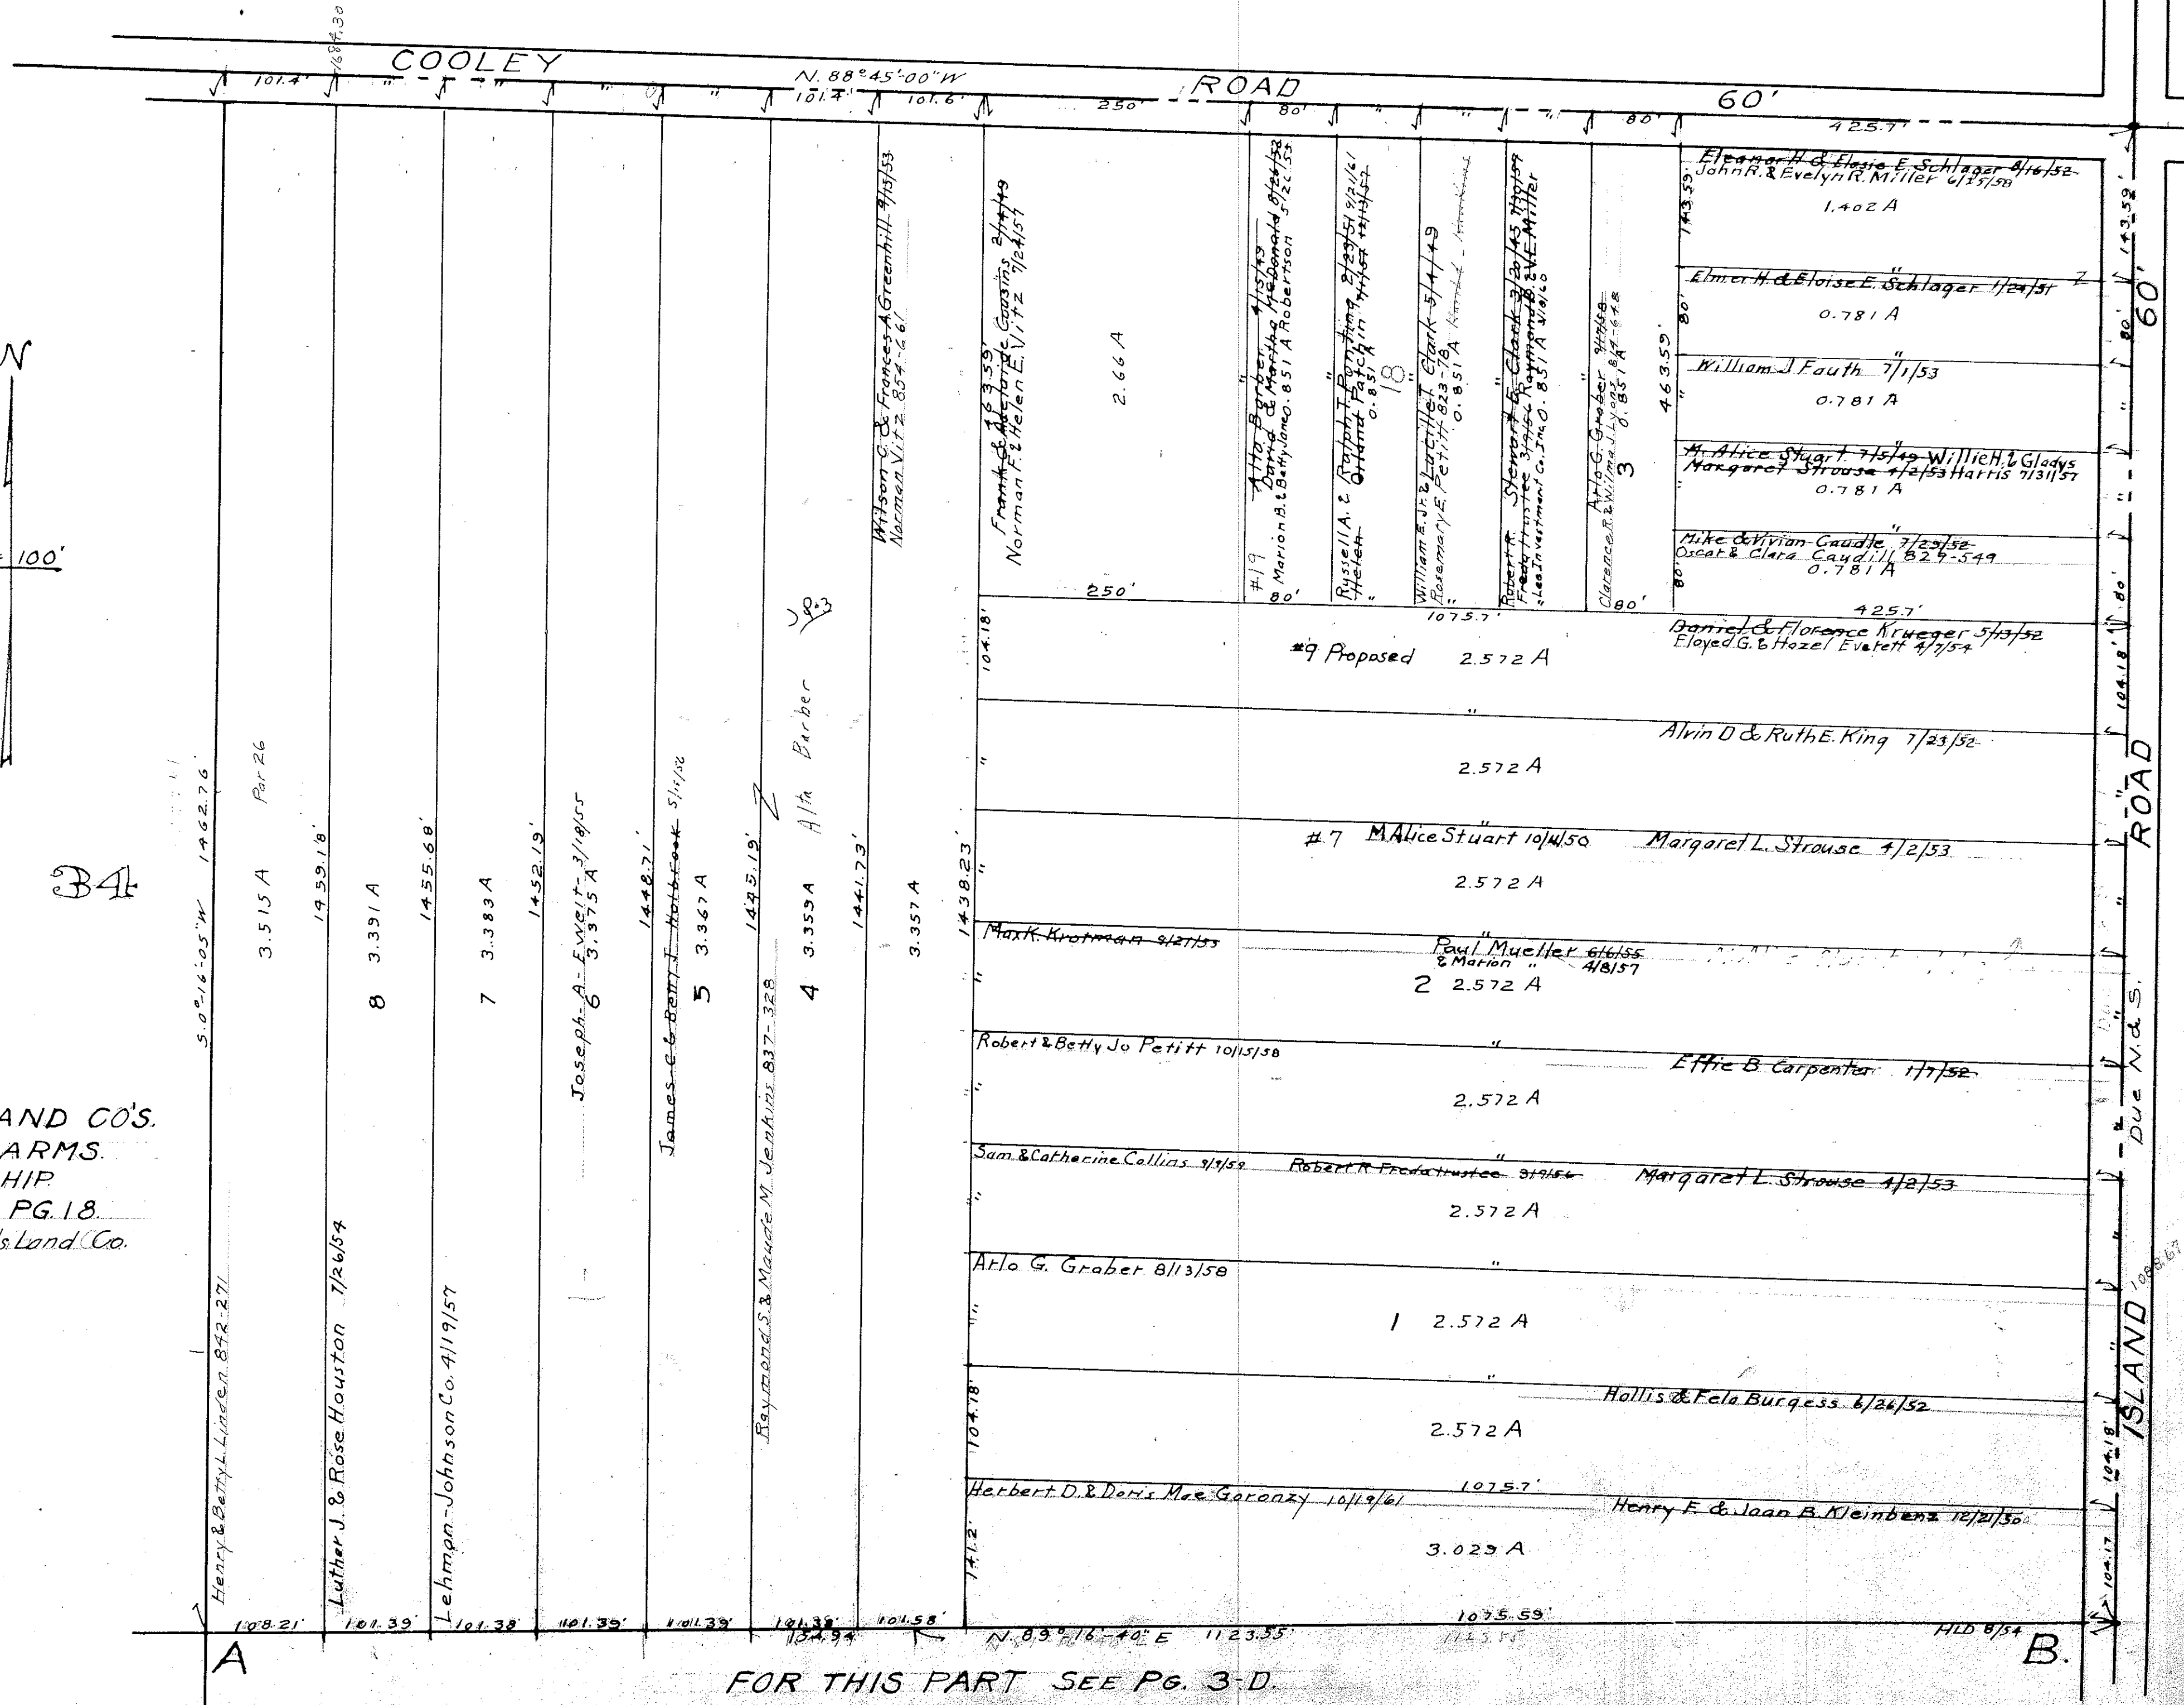 1684.30
COOLEY ROAD 60'
N. 88°45'-00"W
101.4' " " " " 101.4' 101.6' 250' 80' " " " 80' 425.7'
N
= 100'
34
S.0°-16'-05"W 1462.76'
3.515 A Par 26
Henry & Betty L. Linden 842-271
1459.18'
8 3.391 A
Luther J. & Rose Houston 7/26/54
1455.68'
7 3.383 A
Lehman-Johnson Co. 4/19/57
1452.19'
Joseph A. Ewelt 3/18/55
6 3.375 A
1448.71'
James C & Betty J Holbrook 5/15/56
5 3.367 A
1445.19'
Raymond S. & Maude M. Jenkins 837-328
4 3.359 A Alta Barber
1441.73'
Wilson C. & Frances A Greenhill 9/15/53
Norman Vitz 854-661
3.357 A
1438.23'
Frank & Adelaide Cousins 2/14/49
Norman F. & Helen E. Vitz 7/24/57
463.59'
2.66 A
250'
Alta Barber 4/15/49
David & Martha McDonald 8/26/52
#19 Marion B. & Betty Jane Robertson 5/26/55
0.851 A
80'
Russell A. & Ralph T. Ponting 2/23/51 9/21/61
Helen Orland Patchin
0.851 A
18
William E. Jr. & Lucille T. Clark 5/4/49
Rosemary E. Petitt 823-78
0.851 A
Robert R. Stewart E. Clark 3/20/45
Freda trustee 3/9/56 Raymond B. & V.E. Miller
Lea Investment Co. Inc. 0.851 A
Arlo G. Graber
Clarence R. & Wilma J. Lyons 864-648
0.851 A
3
80'
463.59'
143.59'
Eleanor H & Elosie E. Schlager 8/16/52
John R. & Evelyn R. Miller 6/25/58
1.402 A
143.59'
Elmer H. & Eloise E. Schlager 1/24/51
80'
0.781 A
80'
60'
William J Fauth 7/1/53
0.781 A
M. Alice Stuart 7/5/49 Willie H. & Gladys
Margaret Strouse 4/2/53 Harris 7/31/57
0.781 A
Mike & Vivian Caudle 7/29/52
Oscar & Clara Caudill 829-549
0.781 A
80'
80'
1075.7'
425.7'
104.18'
#9 Proposed 2.572 A
Daniel & Florence Krueger 5/13/52
Floyed G. & Hazel Everett 4/7/54
104.18'
"
Alvin D & Ruth E. King 7/23/52
2.572 A
"
#7 M Alice Stuart 10/4/50 Margaret L. Strouse 4/2/53
2.572 A
Max K. Krotman 9/27/55
"
Paul Mueller 6/6/55
& Marion " 4/8/57
2 2.572 A
Robert & Betty Jo Petitt 10/15/58
"
Effie B Carpenter 1/7/52
2.572 A
Sam & Catherine Collins 9/9/59 Robert R Freda trustee 3/9/56 Margaret L. Strouse 4/2/53
"
2.572 A
Arlo G. Graber 8/13/58
"
1 2.572 A
"
Hollis & Fela Burgess 6/26/52
104.18'
2.572 A
104.18'
1075.7'
Herbert D. & Doris Mae Goronzy 10/19/61
Henry F. & Joan B. Kleinbenz 12/21/50
141.2'
3.029 A
104.17
ISLAND ROAD
Due N. & S.
1088.67
AND CO'S.
ARMS.
HIP.
PG. 18.
's Land Co.
108.21' 101.39' 101.38' 101.39' 101.39' 101.38' 101.58' 1075.59'
154.94
N. 89°-16'-40" E 1123.55'
1123.55
HLD 8/54
A
B.
FOR THIS PART SEE PG. 3-D.